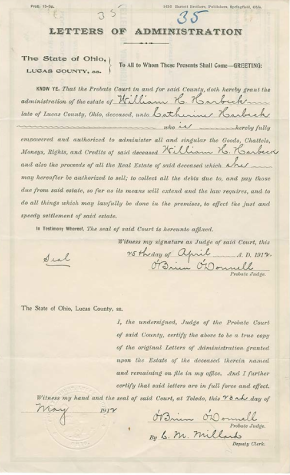 35
35
LETTERS OF ADMINISTRATION
The State of Ohio,
LUCAS COUNTY, ss.
To All to Whom These Presents Shall Come—GREETING:
KNOW YE, That the Probate Court in and for said County, doth hereby grant the
administration of the estate of William H. Harbeck
late of Lucas County, Ohio, deceased, unto Catherine Harbeck
who is hereby fully
empowered and authorized to administer all and singular the Goods, Chattels,
Moneys, Rights, and Credits of said deceased William H. Harbeck
and also the proceeds of all the Real Estate of said deceased which she
may hereafter be authorized to sell; to collect all the debts due to, and pay those
due from said estate, so far as its means will extend and the law requires, and to
do all things which may lawfully be done in the premises, to effect the just and
speedy settlement of said estate.
In Testimony Whereof, The seal of said Court is hereunto affixed.
Witness my signature as Judge of said Court, this
Seal
25th day of April A. D. 1912
O'Brien O'Donnell
Probate Judge.
The State of Ohio, Lucas County, ss.
I, the undersigned, Judge of the Probate Court
of said County, certify the above to be a true copy
of the original Letters of Administration granted
upon the Estate of the deceased therein named
and remaining on file in my office. And I further
certify that said letters are in full force and effect.
Witness my hand and the seal of said Court, at Toledo, this day of
May 1912
O'Brien O'Donnell
Probate Judge.
By C. M. Millard
Deputy Clerk.